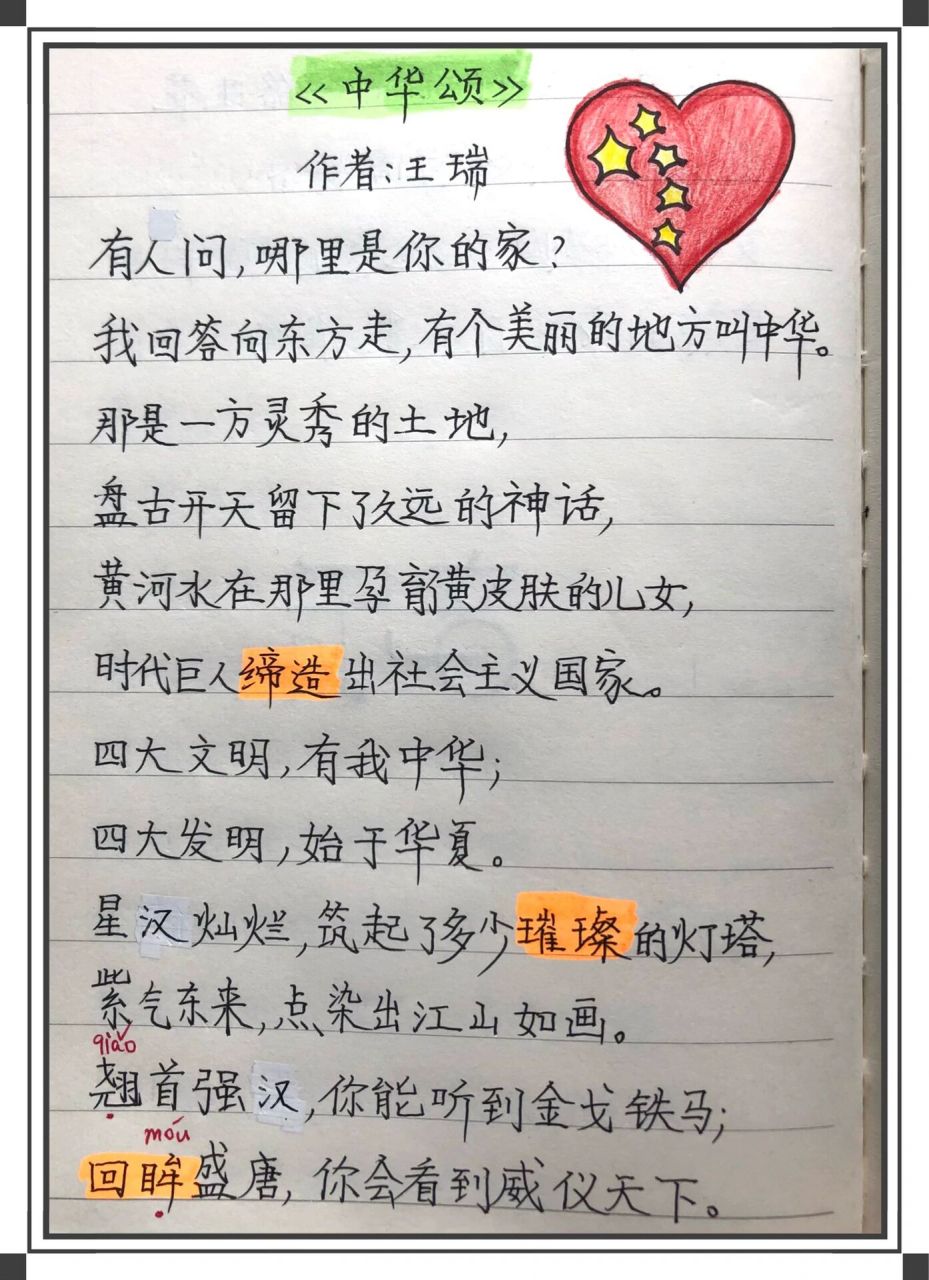 《中华颂》
作者:王瑞
有人问,哪里是你的家?
我回答向东方走,有个美丽的地方叫中华。
那是一方灵秀的土地,
盘古开天留下了久远的神话,
黄河水在那里孕育黄皮肤的儿女,
时代巨人缔造出社会主义国家。
四大文明,有我中华;
四大发明,始于华夏。
星汉灿烂,筑起了多少璀璨的灯塔,
紫气东来,点染出江山如画。
qiáo
翘首强汉,你能听到金戈铁马;
móu
回眸盛唐,你会看到威仪天下。